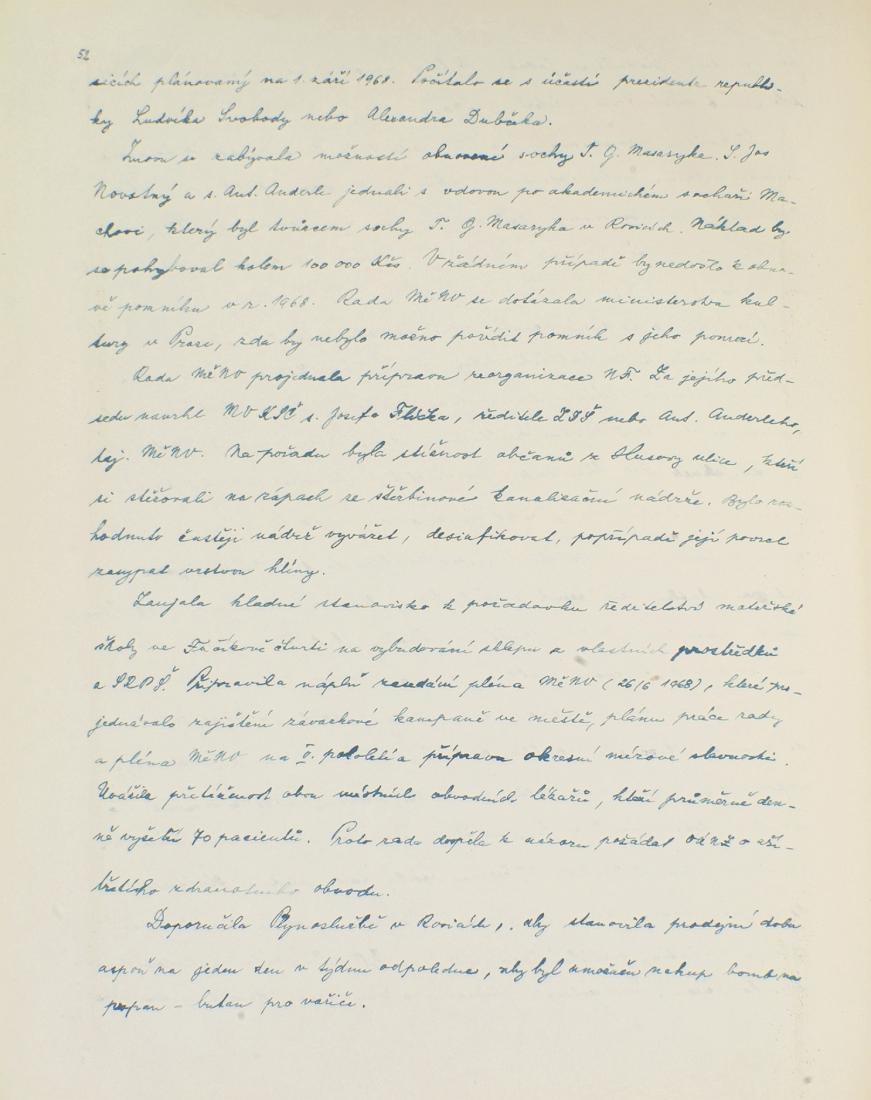 52
sicích plánovaný na 1. září 1968. Počítalo se s účastí prezidenta republi-
ky Ludvíka Svobody nebo Alexandra Dubčeka.
Znovu se zabývala možností obnovení sochy T. G. Masaryka. S. Jos
Novotný a s. Ant. Anderle jednali s vdovou po akademickém sochaři Ma-
chovi, který byl tvůrcem sochy T. G. Masaryka v Rosicích. Náklad by
se pohyboval kolem 100 000 Kčs. V žádném případě by nedošlo k obno-
vě pomníku v r. 1968. Rada MěNV se dotázala ministerstva kul-
tury v Praze, zda by nebylo možno pořídit pomník s jeho pomocí.
Rada MěNV projednala přípravu reorganizace NF. Za jejího před-
sedu navrhl MV KSČ s. Josefa Flička, ředitele ZDŠ nebo Ant. Anderleho,
taj. MěNV. Na pořadu byla stížnost občanů z Husovy ulice, kteří
si stěžovali na zápach ze štěrbinové kanalizační nádrže. Bylo roz-
hodnuto častěji nádrž vyvážet, desinfikovat, popřípadě její povrch
zasypat vrstvou hlíny.
Zaujala kladné stanovisko k požadavku ředitelství mateřské
školy ve Fučíkově čtvrti na vybudování sklepu z vlastních prostředků
a SRPŠ. Připravila náplň zasedání pléna MěNV (26/6 1968), které pro-
jednávalo zajištění závazkové kampaně ve městě, plánu práce rady
a pléna MěNV na II. pololetí a přípravu okresní mírové slavnosti.
Uvážila přetíženost obou místních obvodních lékařů, kteří průměrně den-
ně vyšetří 70 pacientů. Proto rada dospěla k názoru požádat OÚNZ o zří-
třetího zdravotního obvodu.
Doporučila Plynoslužbě v Rosicích, aby stanovila prodejní dobu
aspoň na jeden den v týdnu odpoledne, aby byl umožněn nákup bomb na
propan - butan pro vařiče.